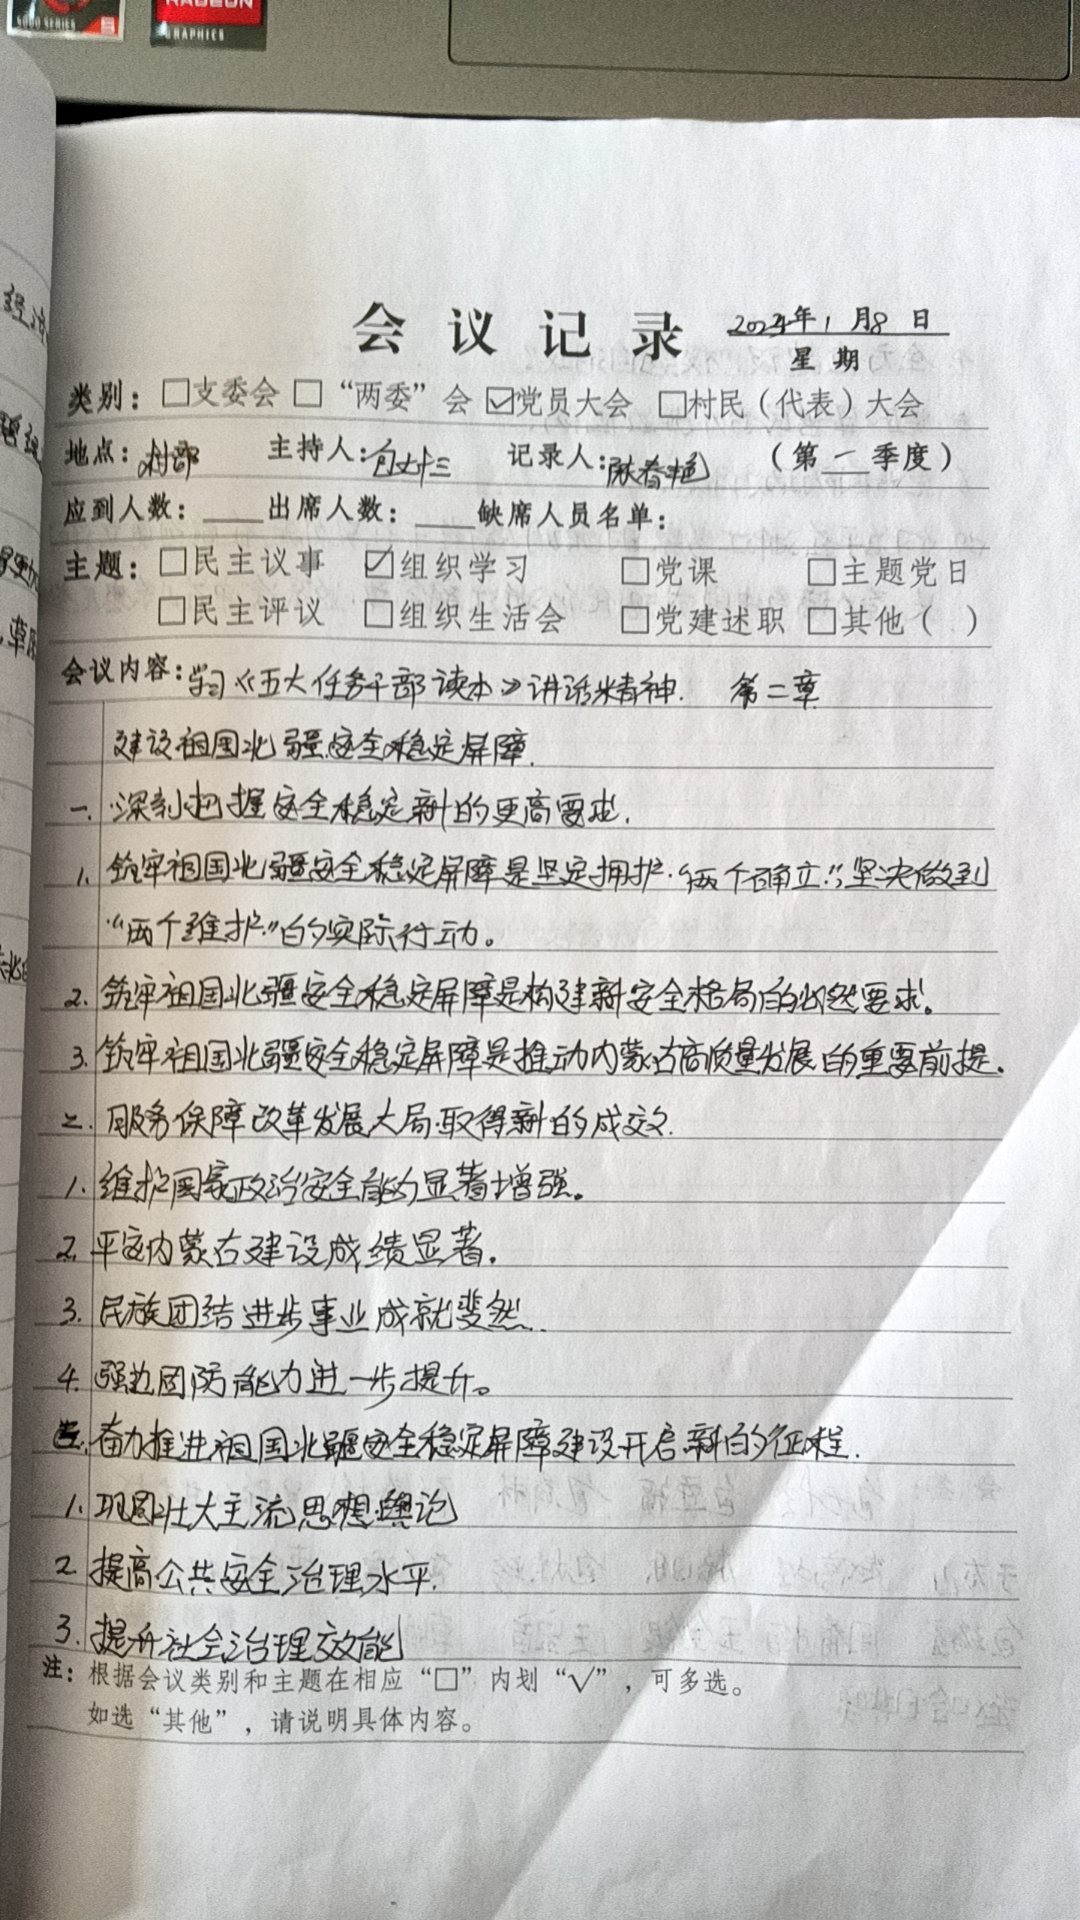 5000 SERIES
RADEON
GRAPHICS
会议记录 2024年1月8日
星期
类别：□支委会 □“两委”会 ☑党员大会 □村民（代表）大会
地点：村部 主持人：包七十三 记录人：陈春艳 （第一季度）
应到人数：____出席人数：____缺席人员名单：
主题：□民主议事 ☑组织学习 □党课 □主题党日
□民主评议 □组织生活会 □党建述职 □其他（ ）
会议内容：学习《五大任务干部读本》讲话精神. 第二章
建设祖国北疆安全稳定屏障.
一. 深刻把握安全稳定新的更高要求.
1. 筑牢祖国北疆安全稳定屏障是坚定拥护“两个确立”，坚决做到
“两个维护”的实际行动。
2. 筑牢祖国北疆安全稳定屏障是构建新安全格局的必然要求。
3. 筑牢祖国北疆安全稳定屏障是推动内蒙古高质量发展的重要前提.
二. 服务保障改革发展大局取得新的成效.
1. 维护国家政治安全能力显著增强。
2. 平安内蒙古建设成绩显著.
3. 民族团结进步事业成就斐然.
4. 强边固防能力进一步提升。
三. 奋力推进祖国北疆安全稳定屏障建设开启新的征程.
1. 巩固壮大主流思想舆论
2. 提高公共安全治理水平.
3. 提升社会治理效能
注：根据会议类别和主题在相应“□”内划“√”，可多选。
如选“其他”，请说明具体内容。